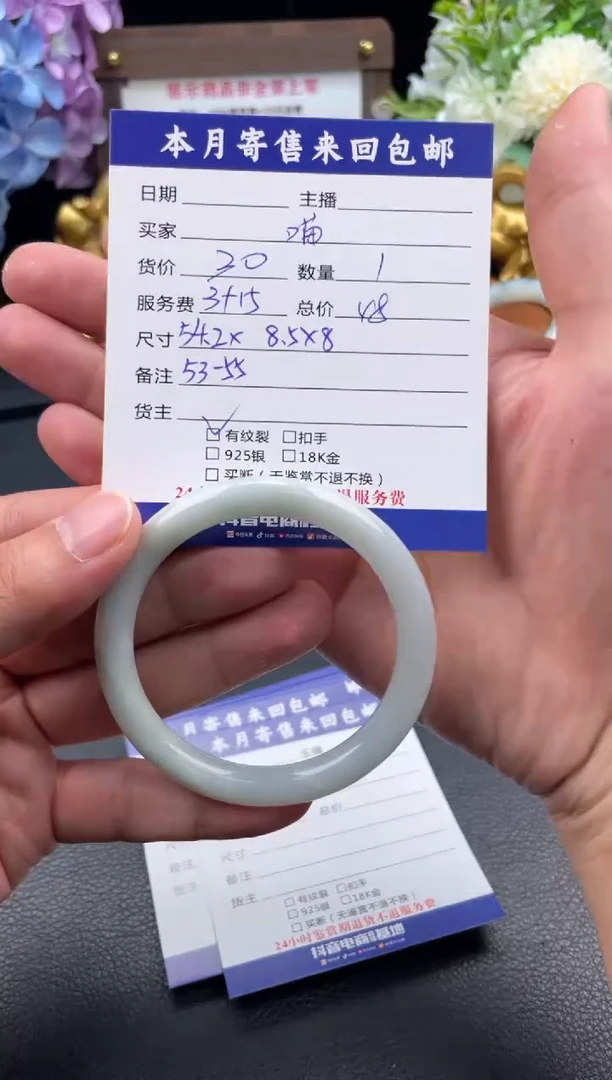 本月寄售来回包邮
日期 主播
买家 喵
货价 30 数量 1
服务费 3+15 总价 48
尺寸 54.2x 8.5x8
备注 53-55
货主
☑ 有纹裂 □ 扣手
□ 925银 □ 18K金
□ 买断(无鉴赏不退不换)
24 退服务费
抖音电商
月寄售来回包邮
本月寄售来回包邮
主播
总价
尺寸
备注
货主
□ 有纹裂 □ 扣手
□ 925银 □ 18K金
□ 买断(无鉴赏不退不换)
24小时鉴赏期退货不退服务费
抖音电商直播